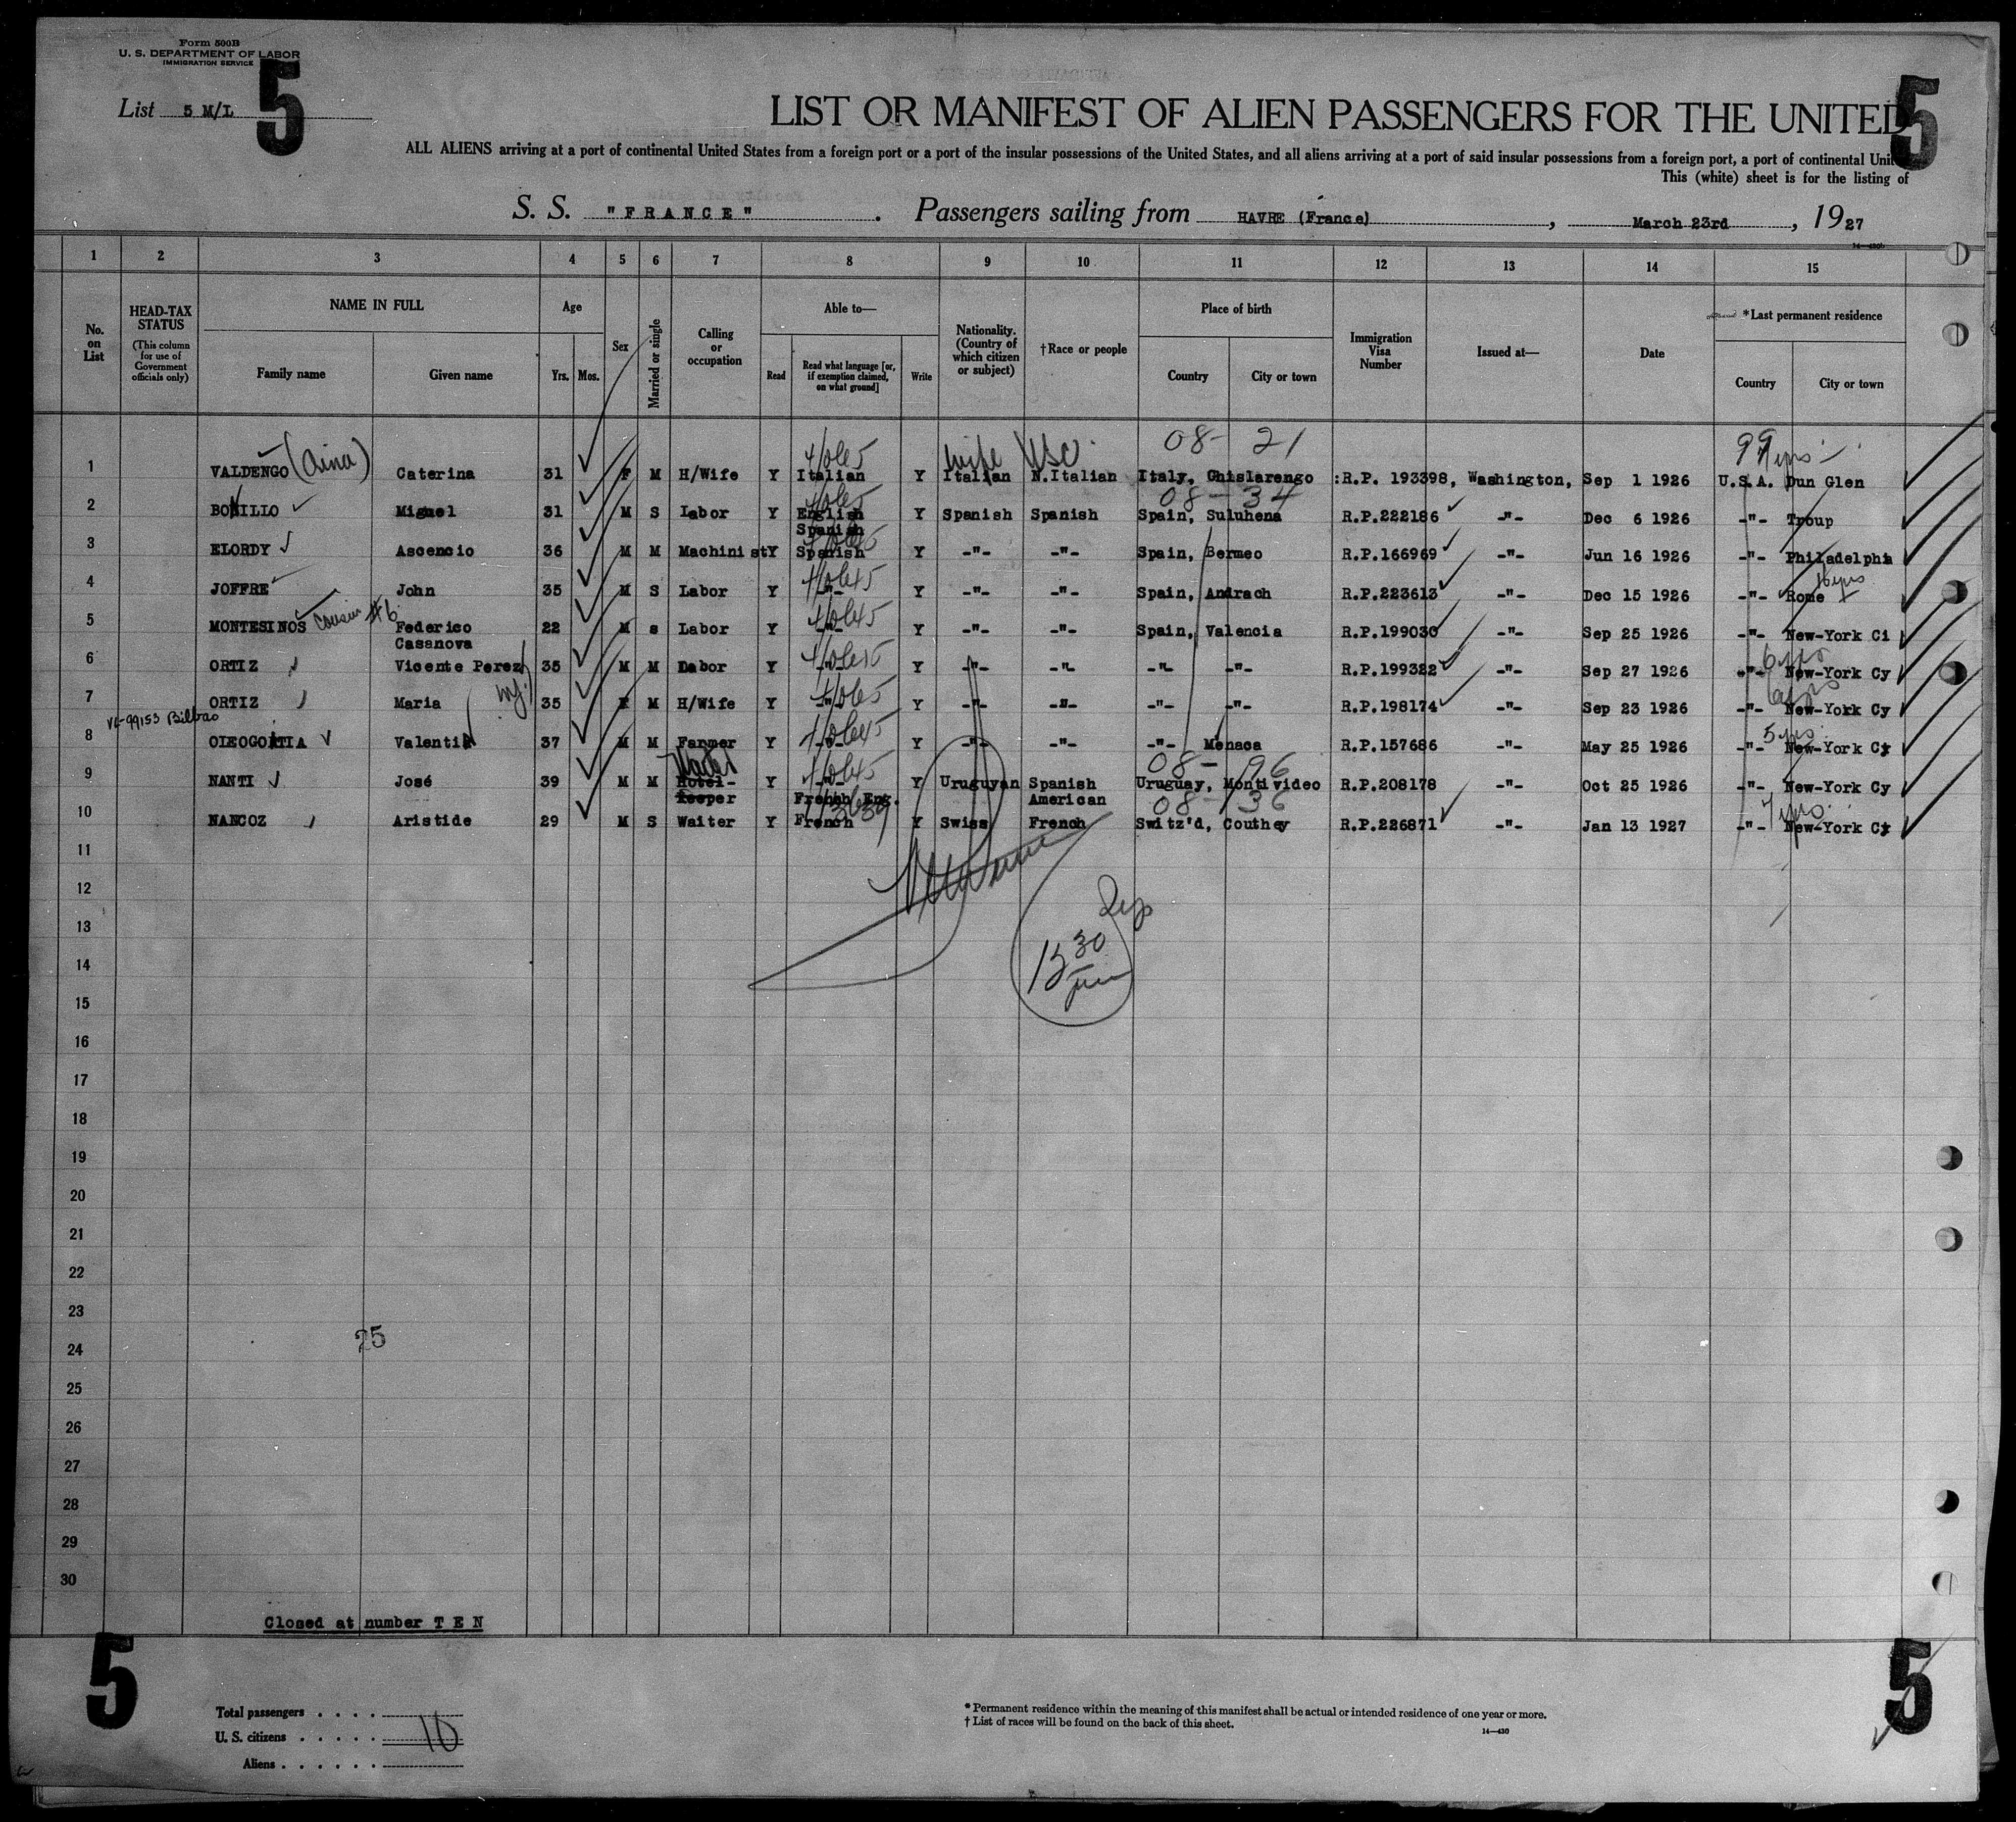 Form 500B
U. S. DEPARTMENT OF LABOR
IMMIGRATION SERVICE
5
5
List 5 M/L
LIST OR MANIFEST OF ALIEN PASSENGERS FOR THE UNITED
ALL ALIENS arriving at a port of continental United States from a foreign port or a port of the insular possessions of the United States, and all aliens arriving at a port of said insular possessions from a foreign port, a port of continental Unit
This (white) sheet is for the listing of
S. S. "FRANCE". Passengers sailing from HAVRE (France), March 23rd, 1927
1 2 3 4 5 6 7 8 9 10 11 12 13 14 15
No. on List
HEAD-TAX STATUS (This column for use of Government officials only)
NAME IN FULL
Family name Given name
Age
Yrs. Mos.
Sex
Married or single
Calling or occupation
Able to—
Read Read what language [or, if exemption claimed, on what ground] Write
Nationality. (Country of which citizen or subject)
†Race or people
Place of birth
Country City or town
Immigration Visa Number
Issued at—
Date
*Last permanent residence
Country City or town
wife USC 08-21
1 VALDENGO (Aina) Caterina 31 F M H/Wife Y Italian Y Italian N.Italian Italy, Ghislarengo :R.P. 193398, Washington, Sep 1 1926 U.S.A. Dun Glen
08-34
2 BONILLO Miguel 31 M S Labor Y English Spanish Y Spanish Spanish Spain, Suluhena R.P.222186 -"- Dec 6 1926 -"- Troup
3 ELORDY Ascencio 36 M M Machinist Y Spanish Y -"- -"- Spain, Bermeo R.P.166969 -"- Jun 16 1926 -"- Philadelphia
16 yrs
4 JOFFRE John 35 M S Labor Y -"- Y -"- -"- Spain, Andrach R.P.223613 -"- Dec 15 1926 -"- Rome
5 MONTESINOS cousin #6 Federico Casanova 22 M s Labor Y -"- Y -"- -"- Spain, Valencia R.P.199030 -"- Sep 25 1926 -"- New-York Ci
6 yrs
6 ORTIZ Vicente Perez 35 M M Labor Y -"- Y -"- -"- -"- -"- R.P.199322 -"- Sep 27 1926 -"- New-York Cy
7 ORTIZ Maria 35 F M H/Wife Y -"- Y -"- -"- -"- -"- R.P.198174 -"- Sep 23 1926 -"- New-York Cy
VL-99153 Bilbao
5 yrs
8 OLEOGOITIA Valentin 37 M M Farmer Y -"- Y -"- -"- -"- Menaca R.P.157686 -"- May 25 1926 -"- New-York Cy
08-96
9 NANTI José 39 M M Hotel-keeper Y -"- French Eng. Y Uruguyan Spanish American Uruguay, Montivideo R.P.208178 -"- Oct 25 1926 -"- New-York Cy
08-36
7 yrs
10 NANCOZ Aristide 29 M S Waiter Y French Y Swiss French Switz'd, Couthey R.P.226871 -"- Jan 13 1927 -"- New-York Cy
11
12
13
14
15
16
17
18
19
20
21
22
23
24
25
25
26
27
28
29
30
Closed at number TEN
5
5
Total passengers . . . .
U. S. citizens . . . . . 10
Aliens . . . . . .
* Permanent residence within the meaning of this manifest shall be actual or intended residence of one year or more.
† List of races will be found on the back of this sheet.
14—430